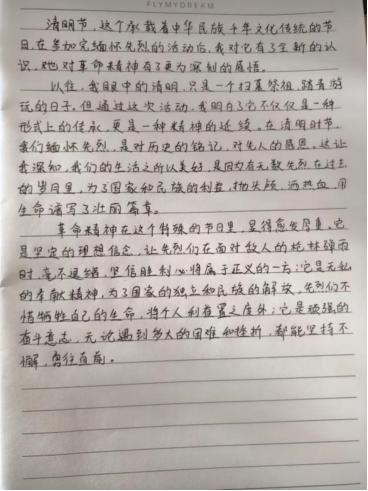 FLYMYDREAM
清明节，这个承载着中华民族千年文化传统的节
日，在参加完缅怀先烈的活动后，我对它有了全新的认
识，也对革命精神有了更为深刻的感悟。
以往，我眼中的清明，只是一个扫墓祭祖，踏青游
玩的日子，但通过这次活动，我明白了它不仅仅是一种
形式上的传承，更是一种精神的延续。在清明时节，
我们缅怀先烈，是对历史的铭记，对先人的感恩。这让
我深知，我们的生活之所以美好，是因为有无数先烈在过去
的岁月里，为了国家和民族的利益，抛头颅，洒热血，用
生命谱写了壮丽篇章。
革命精神在这个特殊的节日里，显得愈发厚重。它
是坚定的理想信念，让先烈们在面对敌人的枪林弹雨
时，毫不退缩，坚信胜利必将属于正义的一方；它是无私
的奉献精神，为了国家的独立和民族的解放，先烈们不
惜牺牲自己的生命，将个人利益置之度外；它是顽强的
奋斗意志，无论遇到多大的困难和挫折，都能坚持不
懈，勇往直前。